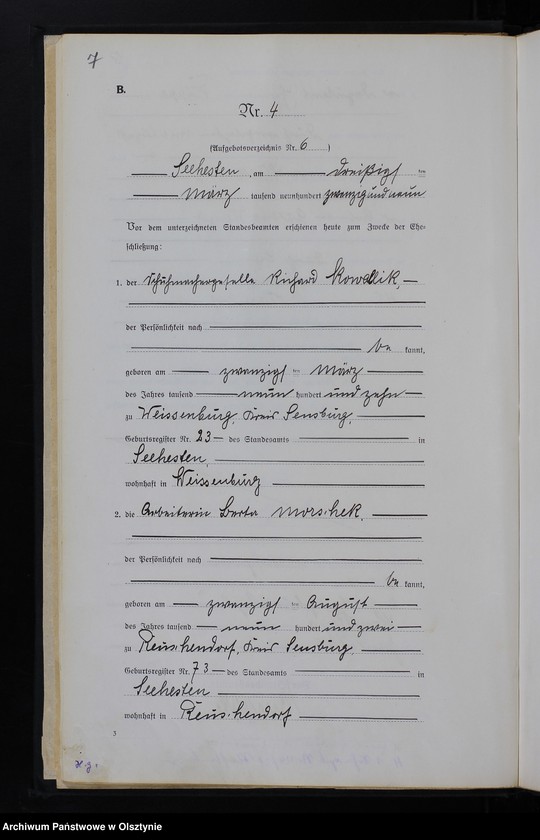 7
B.
Nr. 4
(Aufgebotsverzeichnis Nr. 6)
Seehesten, am dreißigs ten
März tausend neunhundert zwanzig und neun
Vor dem unterzeichneten Standesbeamten erschienen heute zum Zwecke der Ehe-
schließung:
1. der Schuhmachergeselle Richard Kowallik,
der Persönlichkeit nach
be kannt,
geboren am zwanzigs ten März
des Jahres tausend neun hundert und zehn
zu Weissenburg, Kreis Sensburg,
Geburtsregister Nr. 23 des Standesamts in
Seehesten,
wohnhaft in Weissenburg
2. die Arbeiterin Berta
der Persönlichkeit nach
be kannt,
geboren am zwanzigs ten August
des Jahres tausend neun hundert und zwei
zu Reuschendorf, Kreis Sensburg,
Geburtsregister Nr. 73 des Standesamts in
Seehesten
wohnhaft in Reuschendorf
3
Archiwum Państwowe w Olsztynie